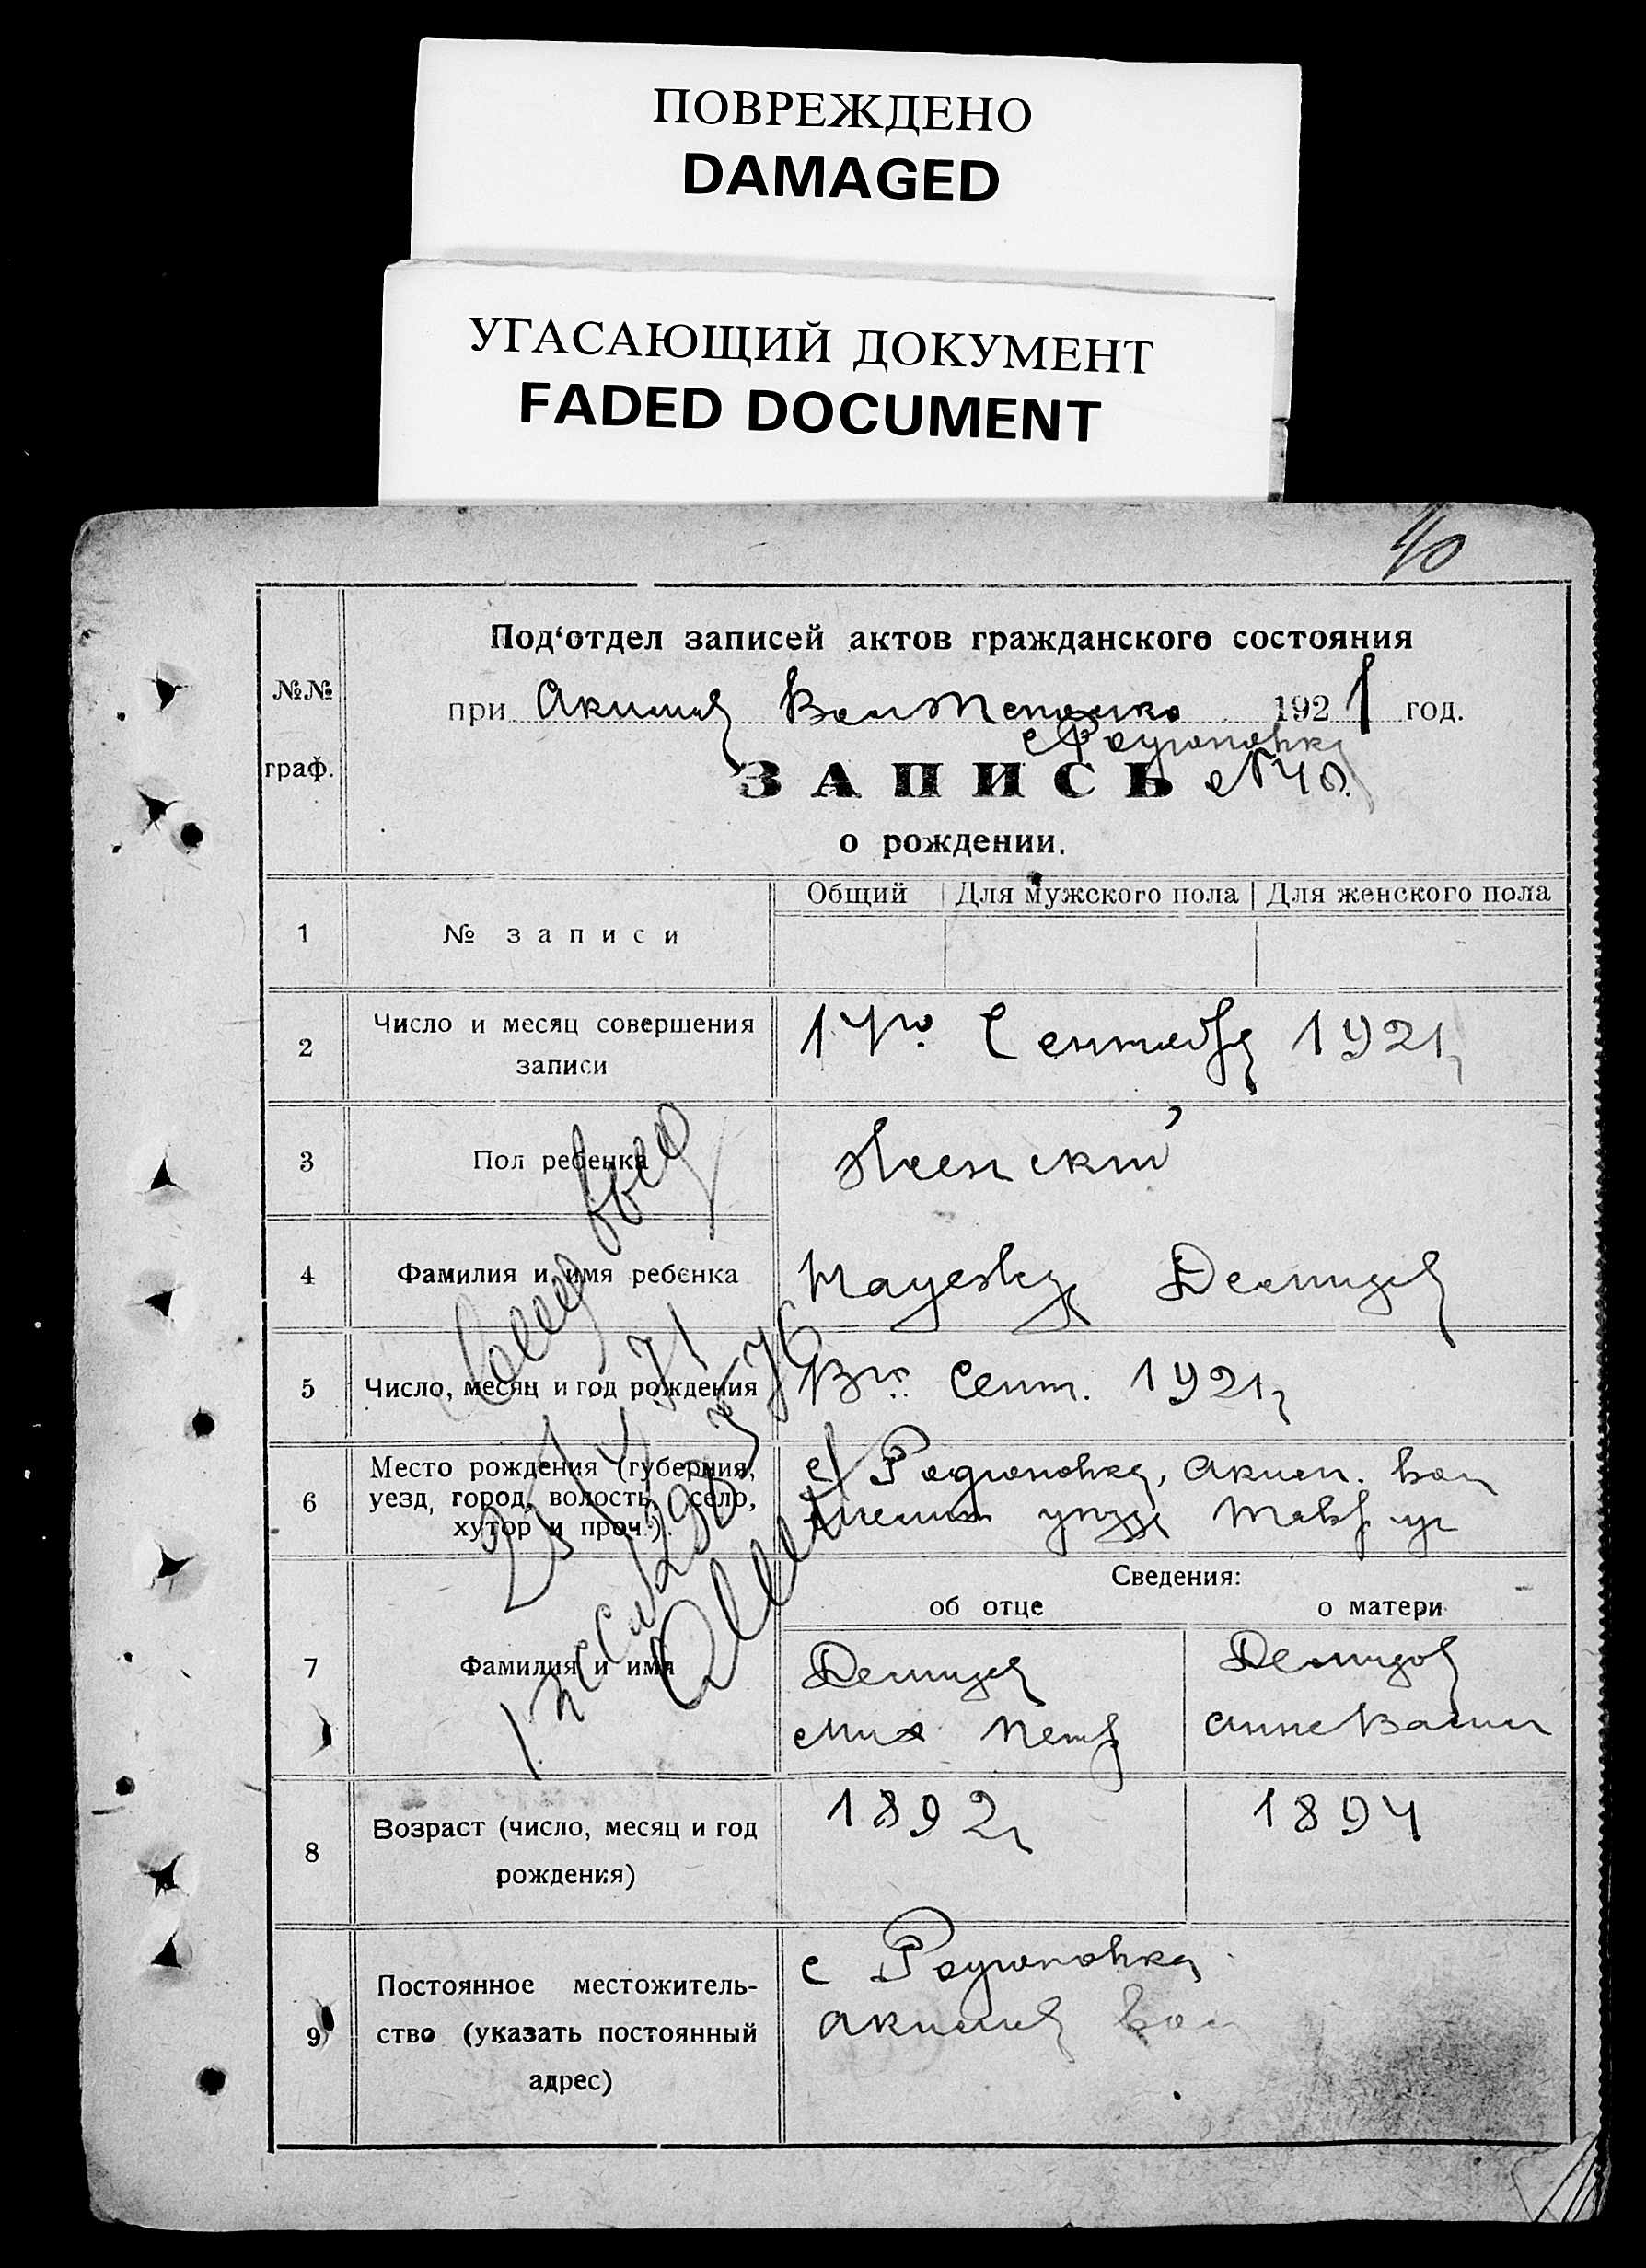 ПОВРЕЖДЕНО
DAMAGED
УГАСАЮЩИЙ ДОКУМЕНТ
FADED DOCUMENT
40
Под'отдел записей актов гражданского состояния
№№
граф.
при Акимов 1921 год.
с Родионовка
ЗАПИСЬ №40.
о рождении.
Общий Для мужского пола Для женского пола
1 № записи
2 Число и месяц совершения записи 17го Сентября 1921
3 Пол ребенка Женский
4 Фамилия и имя ребенка Надежда Демидов
5 Число, месяц и год рождения Сент. 1921
6 Место рождения (губерния, с Родионовка, Аким. вол
уезд, город, волость, село, уезда Тавр.
хутор и проч.).
Сведения:
об отце о матери
7 Фамилия и имя Демидов Демидов
Мих Петр Анне Васил
8 Возраст (число, месяц и год 1892 1894
рождения)
9 Постоянное местожитель- с Родионовка
ство (указать постоянный Акимов вол
адрес)